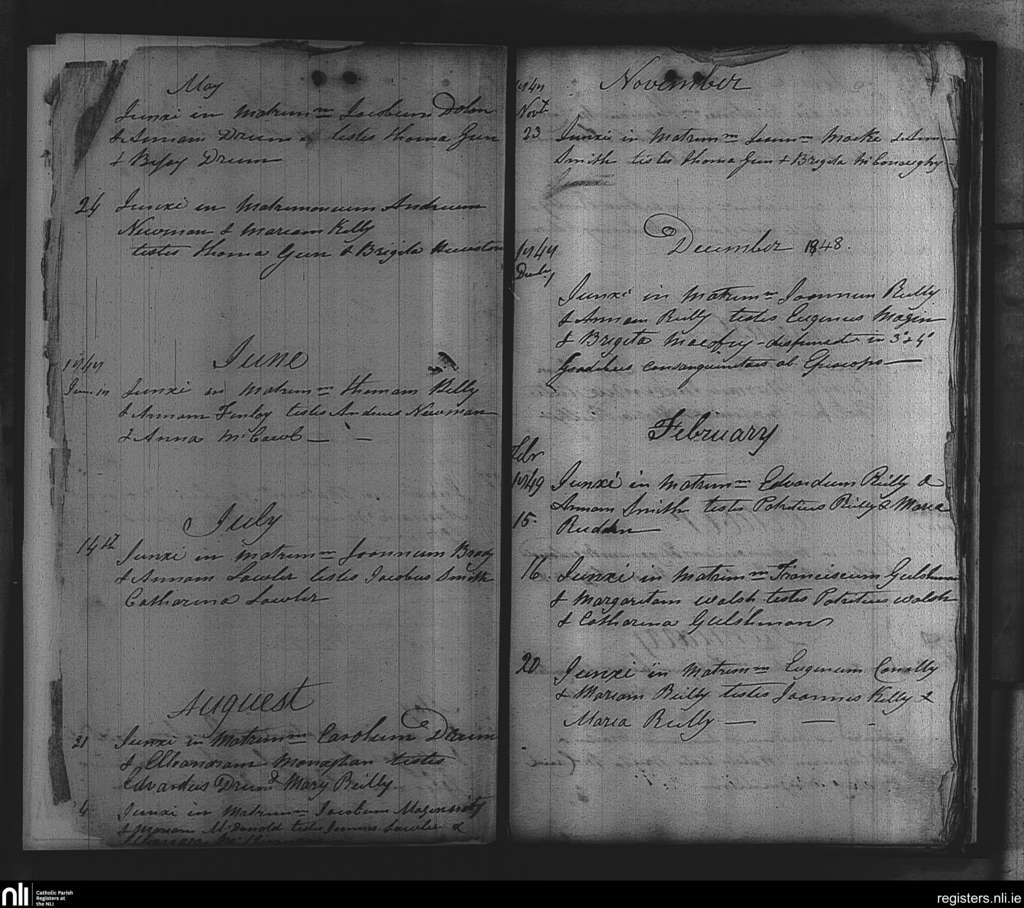 May
Junxi in matrimm Jacobum Dolan
& Annam Drum testes Thoma Gun
& Drum
24 Junxi in Matrimonium Andreum
Newman & Mariam Kelly
testes Thoma Gun & Brigita
June
Junxi in Matrimm Thomam Reilly
& Annam Finlay testes Andreus Newman
& Anna McCawl
July
14th Junxi in Matrimm Joannum Brady
& Annam Lawler testes Jacobus Smith
Catharina Lawler
Auguest
21 Junxi in Matrimm Carolum Drum
& Elleanoram Monaghan testes
Edvardus Drum & Mary Reilly
4 Junxi in Matrimm Jacobum
& Mariam McDonald testes Lawler &
November
Novr
23 Junxi in Matrimm Joanm & Anm
Smith testes Thoma Gun & Brigita McConaghy
December 1848.
Junxi in Matrimm Joannum Reilly
& Annam Reilly testes Eugenius Magin
& Brigita - dispensats in 3° & 4°
consanguinitas ab Episcopo
February
Febr
1849 Junxi in Matrimm Edvardum Reilly &
15. Annam Smith testes Patritius Reilly & Maria
Rudden
16 Junxi in Matrimm Franciscum Gulshman
& Margaritam Walsh testes Patritius Walsh
& Catharina Gulshman
20 Junxi in Matrimm Eugenium Conally
& Mariam Reilly testes Joannus Kelly &
Maria Reilly
nli Catholic Parish
Registers at
the NLI
registers.nli.ie